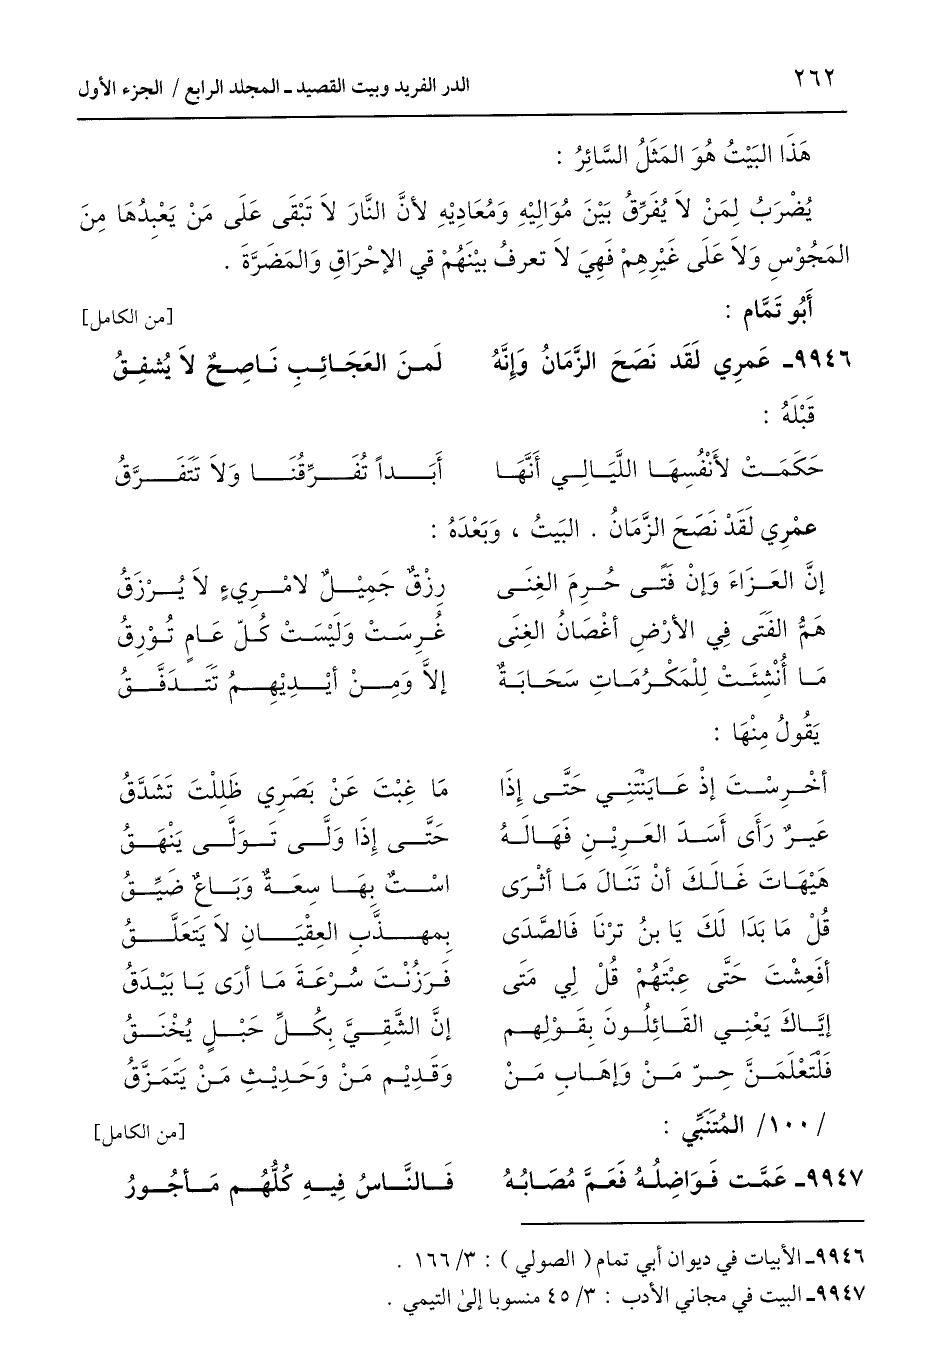 ٢٦٢ الدر الفريد وبيت القصيد ـ المجلد الرابع / الجزء الأول
هَذَا البَيْتُ هُوَ المَثَلُ السَّائِرُ :
يُضْرَبُ لِمَنْ لاَ يُفَرِّقُ بَيْنَ مُوَالِيْهِ وَمُعَادِيْهِ لأنَّ النَّارَ لاَ تَبْقَى عَلَى مَنْ يَعْبِدُهَا مِنَ
المَجُوْسِ وَلاَ عَلَى غَيْرِهِمْ فَهِيَ لاَ تعرفُ بيْنَهُمْ في الإحْرَاقِ وَالمَضَرَّةَ .
أَبُو تَمَّام : [من الكامل]
٩٩٤٦ـ عَمرِي لَقَد نَصَحَ الزَّمَانُ وَإِنَّهُ لَمِنَ العَجَائِبِ نَاصِحٌ لاَ يُشفِقُ
قَبْلَهُ :
حَكَمَتْ لأنْفُسِهَا اللَّيَالِي أَنَّهَا أَبَداً تُفَرِّقُنَا وَلاَ تَتَفَرَّقُ
عمْرِي لَقَدْ نَصَحَ الزَّمَانُ . البَيتُ ، وَبَعْدَهُ :
إنَّ العَزَاءَ وَإنْ فَتًى حُرِمَ الغِنَى رِزْقٌ جَمِيْلٌ لامْرِيءٍ لاَ يُرْزَقُ
هَمُّ الفَتَى فِي الأرْضِ أغْصَانُ الغِنَى غُرِسَتْ وَلَيْسَتْ كُلّ عَامٍ تُوْرِقُ
مَا أُنْشِئَتْ لِلْمَكْرُمَاتِ سَحَابَةٌ إلاَّ وَمِنْ أيْدِيْهِمُ تَتَدَفَّقُ
يَقُولُ مِنْهَا :
أخْرِسْتَ إذْ عَايَنْتَنِي حَتَّى إذَا مَا غِبْتَ عَنْ بَصَرِي ظَلِلْتَ تَشَدَّقُ
عَيرٌ رَأى أسَدَ العَرِيْنِ فَهَالَهُ حَتَّى إذَا وَلَّى تَوَلَّى يَنْهَقُ
هَيْهَاتَ غَالَكَ أنْ تَنَالَ مَا أثْرَى اسْتٌ بِهَا سِعَةٌ وَبَاعٌ ضَيِّقُ
قُلْ مَا بَدَا لَكَ يَا بنُ تَرْنَا فَالصَّدَى بِمهذَّبِ العِقْيَانِ لاَ يَتَعَلَّقُ
أفَعِشْتَ حَتَّى عِبْتَهُمْ قُلْ لِي مَتَى فَرزُنْتَ سُرْعَةَ مَا أرَى يَا بَيْدَقُ
إيَّاكَ يَعْنِي القَائِلُونَ بِقَوْلِهِم إنَّ الشَّقِيَّ بِكُلِّ حَبْلٍ يُخْنَقُ
فَلَتَعْلَمَنَّ حِرّ مَنْ وَإهَاب مَنْ وَقَدِيْم مَنْ وَحَدِيْث مَنْ يَتَمَزَّقُ
/ ١٠٠/ المُتَنَبِّي : [من الكامل]
٩٩٤٧ـ عَمَّت فَوَاضِلُهُ فَعَمَّ مُصَابُهُ فَالنَّاسُ فِيهِ كُلُّهُم مَأجُورُ
٩٩٤٦ـ الأبيات في ديوان أبي تمام ( الصولي ) : ٣/ ١٦٦ .
٩٩٤٧ـ البيت في مجاني الأدب : ٣/ ٤٥ منسوبا إلى التيمي .